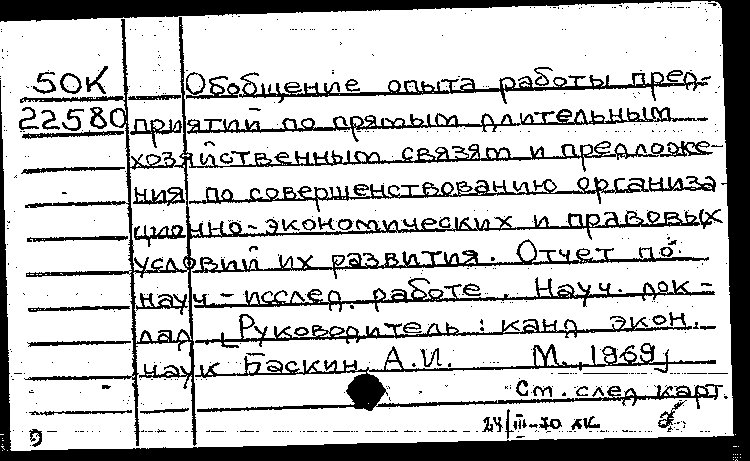 50К Обобщение опыта работы пред-
22580 приятий по прямым длительным
хозяйственным связям и предложе-
ния по совершенствованию организа
ционно-экономических и правовых
условий их развития. Отчет по
науч-исслед. работе. Науч. док-
лад. [Руководитель: канд экон.
наук Баскин, А.И. М., 1969,
См. след карт.
24/III-70
9